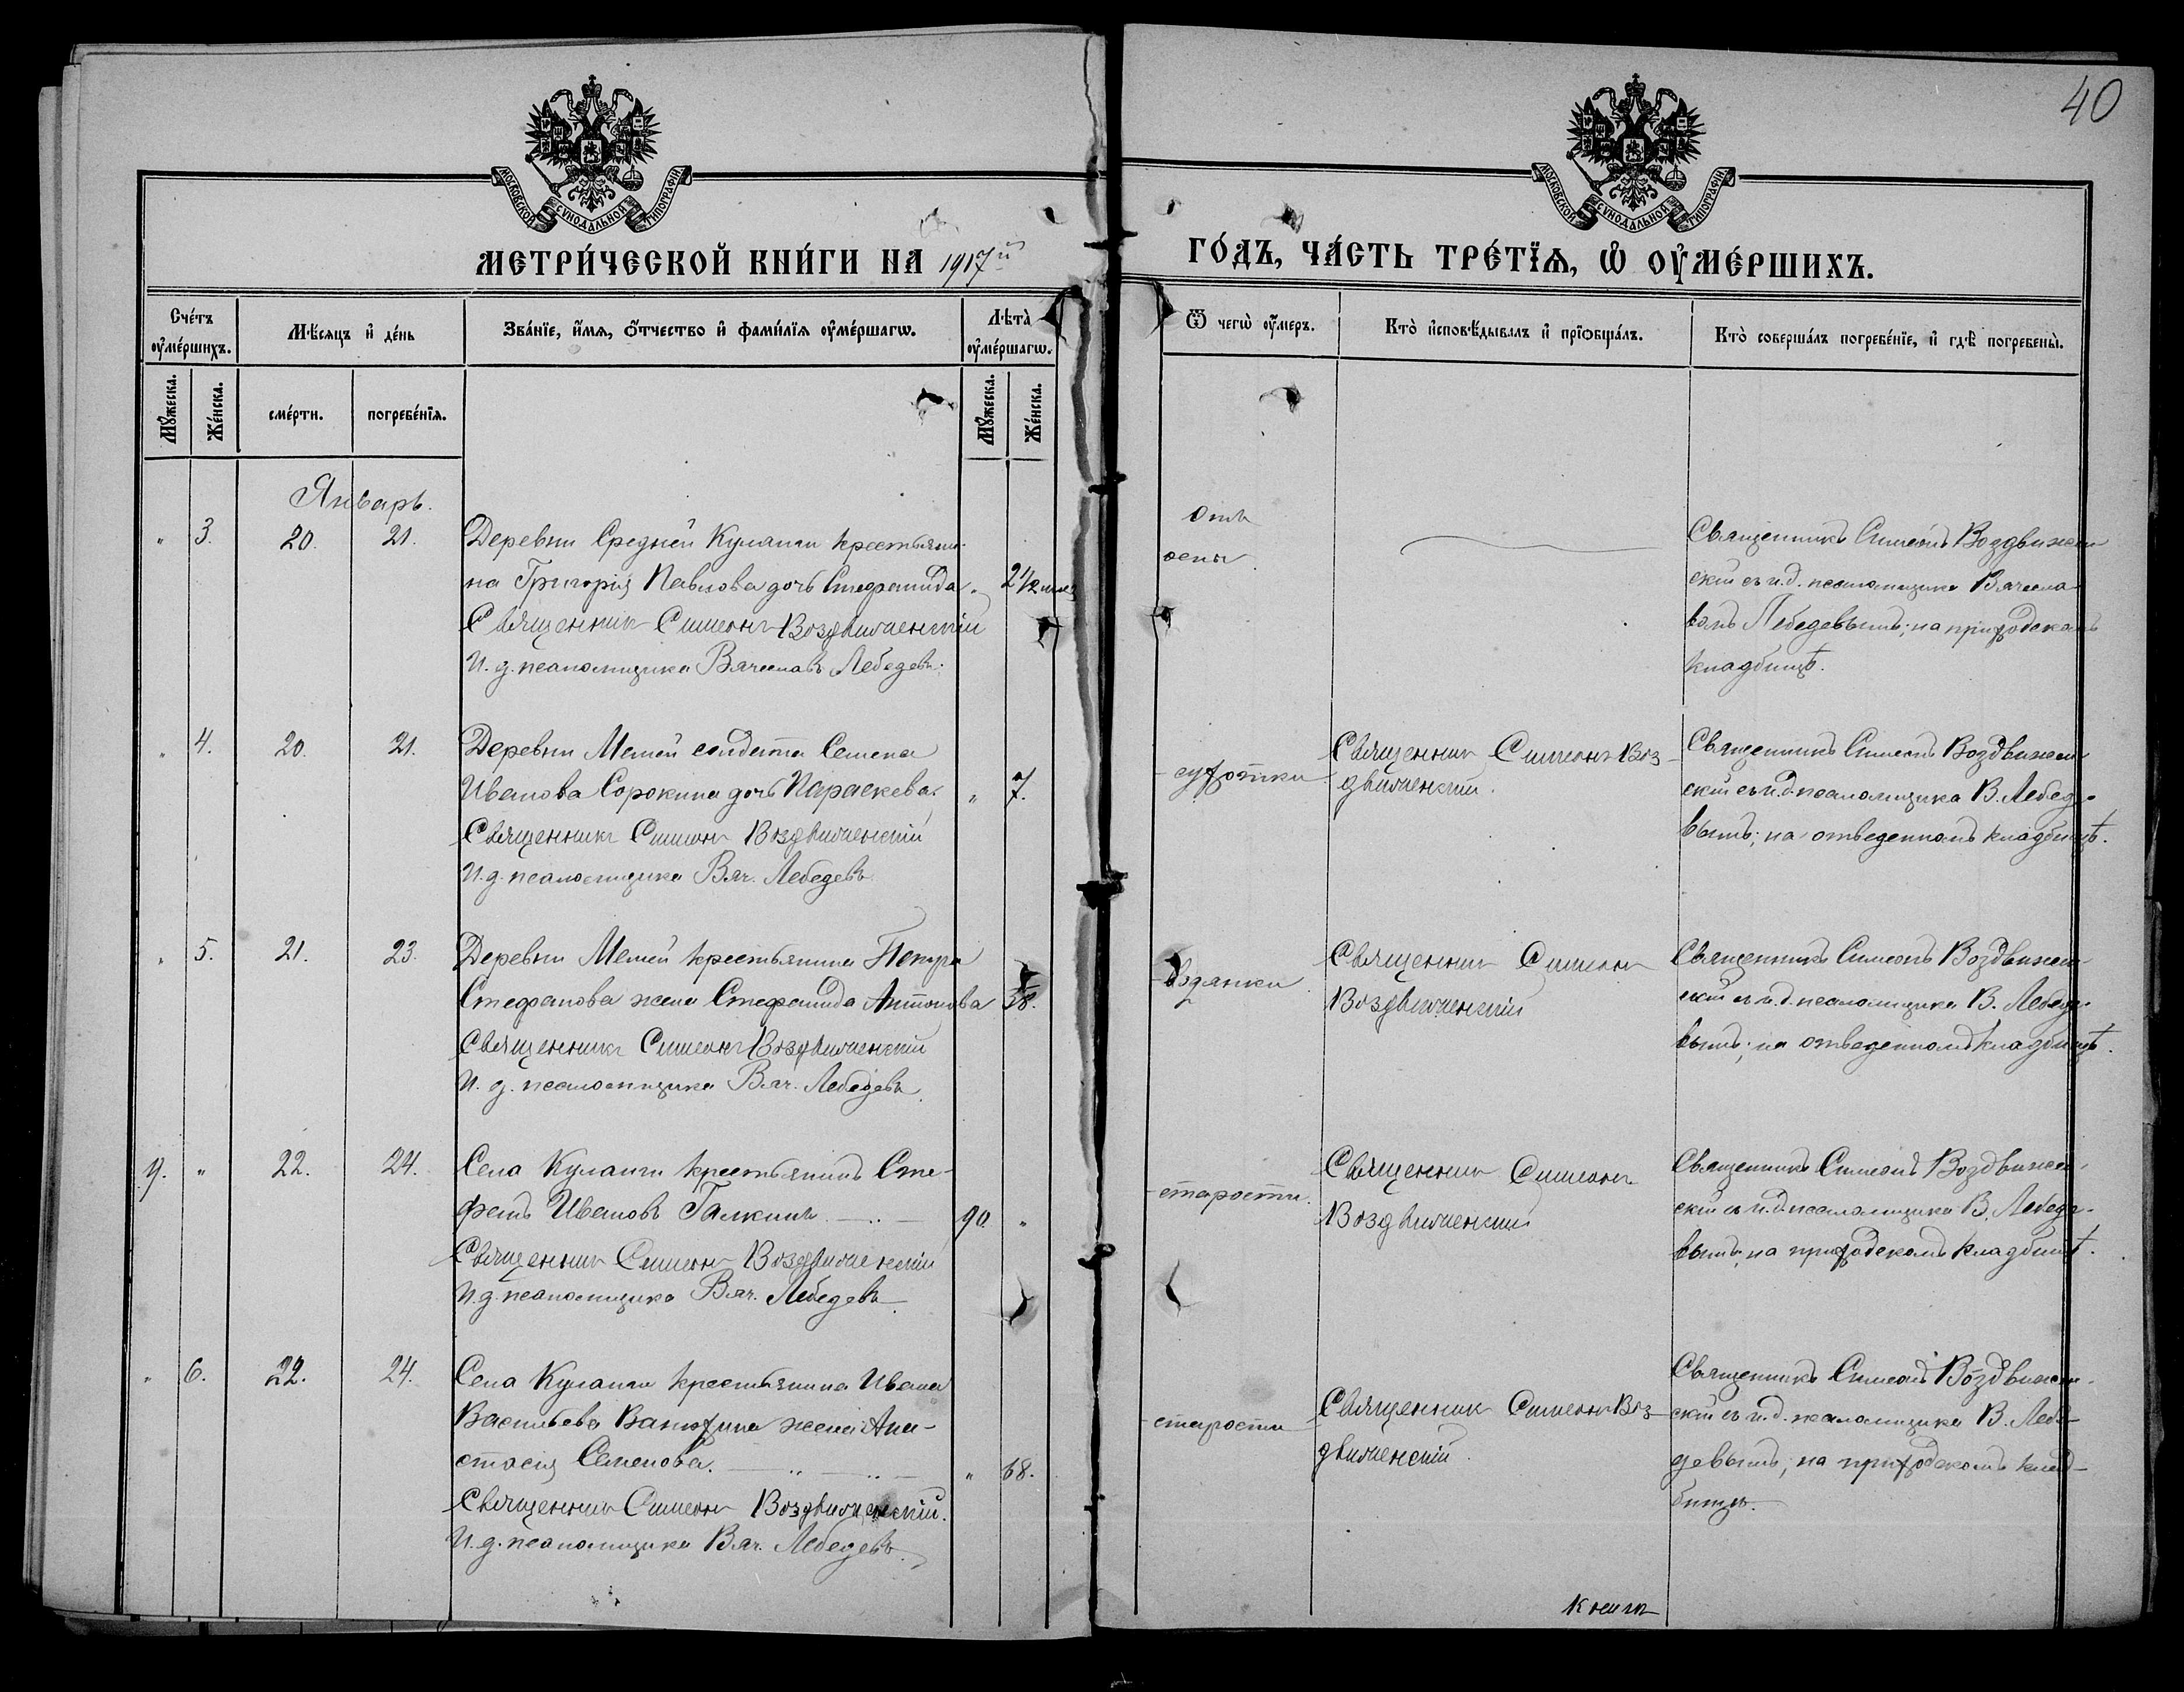 40
МОСКОВСКОЙ СѴНОДАЛЬНОЙ ТИПОГРАФІИ
МОСКОВСКОЙ СѴНОДАЛЬНОЙ ТИПОГРАФІИ
МЕТРИ́ЧЕСКОЙ КНИ́ГИ НА 1917й
ГО́ДЪ, ЧА́СТЬ ТРЕ́ТЇѦ, Ѽ ОУ҆МЕ́РШИХЪ.
Сче́тъ оу҆ме́ршихъ.
Мѣ́сяцъ и҆ де́нь
Зва́нїе, и҆́мѧ, ѻ҆́тчество и҆ фами́лїѧ оу҆ме́ршагѡ.
Лѣ́та оу҆ме́ршагѡ.
Ѿ чегѡ̀ оу҆́меръ.
Кто̀ и҆сповѣ́дывалъ и҆ прїѡбща́лъ.
Кто̀ соверша́лъ погребе́нїе, и҆ гдѣ̀ погребены̀.
Мꙋ́жеска.
Же́нска.
сме́рти.
погребе́нїѧ.
Мꙋ́жеска.
Же́нска.
Январь.
" 3. 20. 21.
Деревни Средней Куланги крестьяни-
на Григорія Павлова дочь Стефанида " 2 1/2 мѣс.
Священникъ Симеонъ Воздвиженскій
И. д. псаломщика Вячеславъ Лебедевъ.
Отъ
оспы
Священникъ Симеонъ Воздвижен-
скій съ и.д. псаломщика Вячесла-
вомъ Лебедевымъ; на приходскомъ
кладбищѣ.
" 4. 20. 21.
Деревни Мемей солдата Семена
Иванова Сорокина дочь Параскева. " 7.
Священникъ Симеонъ Воздвиженскій
И. д. псаломщика Вяч. Лебедевъ.
сухотки
Священникъ Симеонъ Воз-
движенскій.
Священникъ Симеонъ Воздвижен-
скій съ и.д. псаломщика В. Лебеде-
вымъ; на отведенномъ кладбищѣ.
" 5. 21. 23.
Деревни Мемей крестьянина Петра
Стефанова жена Стефанида Антонова 58.
Священникъ Симеонъ Воздвиженскій
И. д. псаломщика Вяч. Лебедевъ.
водянки
Священникъ Симеонъ
Воздвиженскій
Священникъ Симеонъ Воздвижен-
скій съ и.д. псаломщика В. Лебеде-
вымъ; на отведенномъ кладбищѣ.
9. " 22. 24.
Села Куланги крестьянинъ Сте-
фанъ Ивановъ Галкинъ. 90. "
Священникъ Симеонъ Воздвиженскій
И. д. псаломщика Вяч. Лебедевъ.
старости.
Священникъ Симеонъ
Воздвиженскій
Священникъ Симеонъ Воздвижен-
скій съ и.д. псаломщика В. Лебеде-
вымъ; на приходскомъ кладбищѣ.
" 6. 22. 24.
Села Куланги крестьянина Ивана
Васильева Ванюхина жена Ана-
стасія Семенова. " 68.
Священникъ Симеонъ Воздвиженскій.
И. д. псаломщика Вяч. Лебедевъ.
старости
Священникъ Симеонъ Воз-
движенскій.
Священникъ Симеонъ Воздвижен-
скій съ и.д. псаломщика В. Лебе-
девымъ; на приходскомъ клад-
бищѣ.